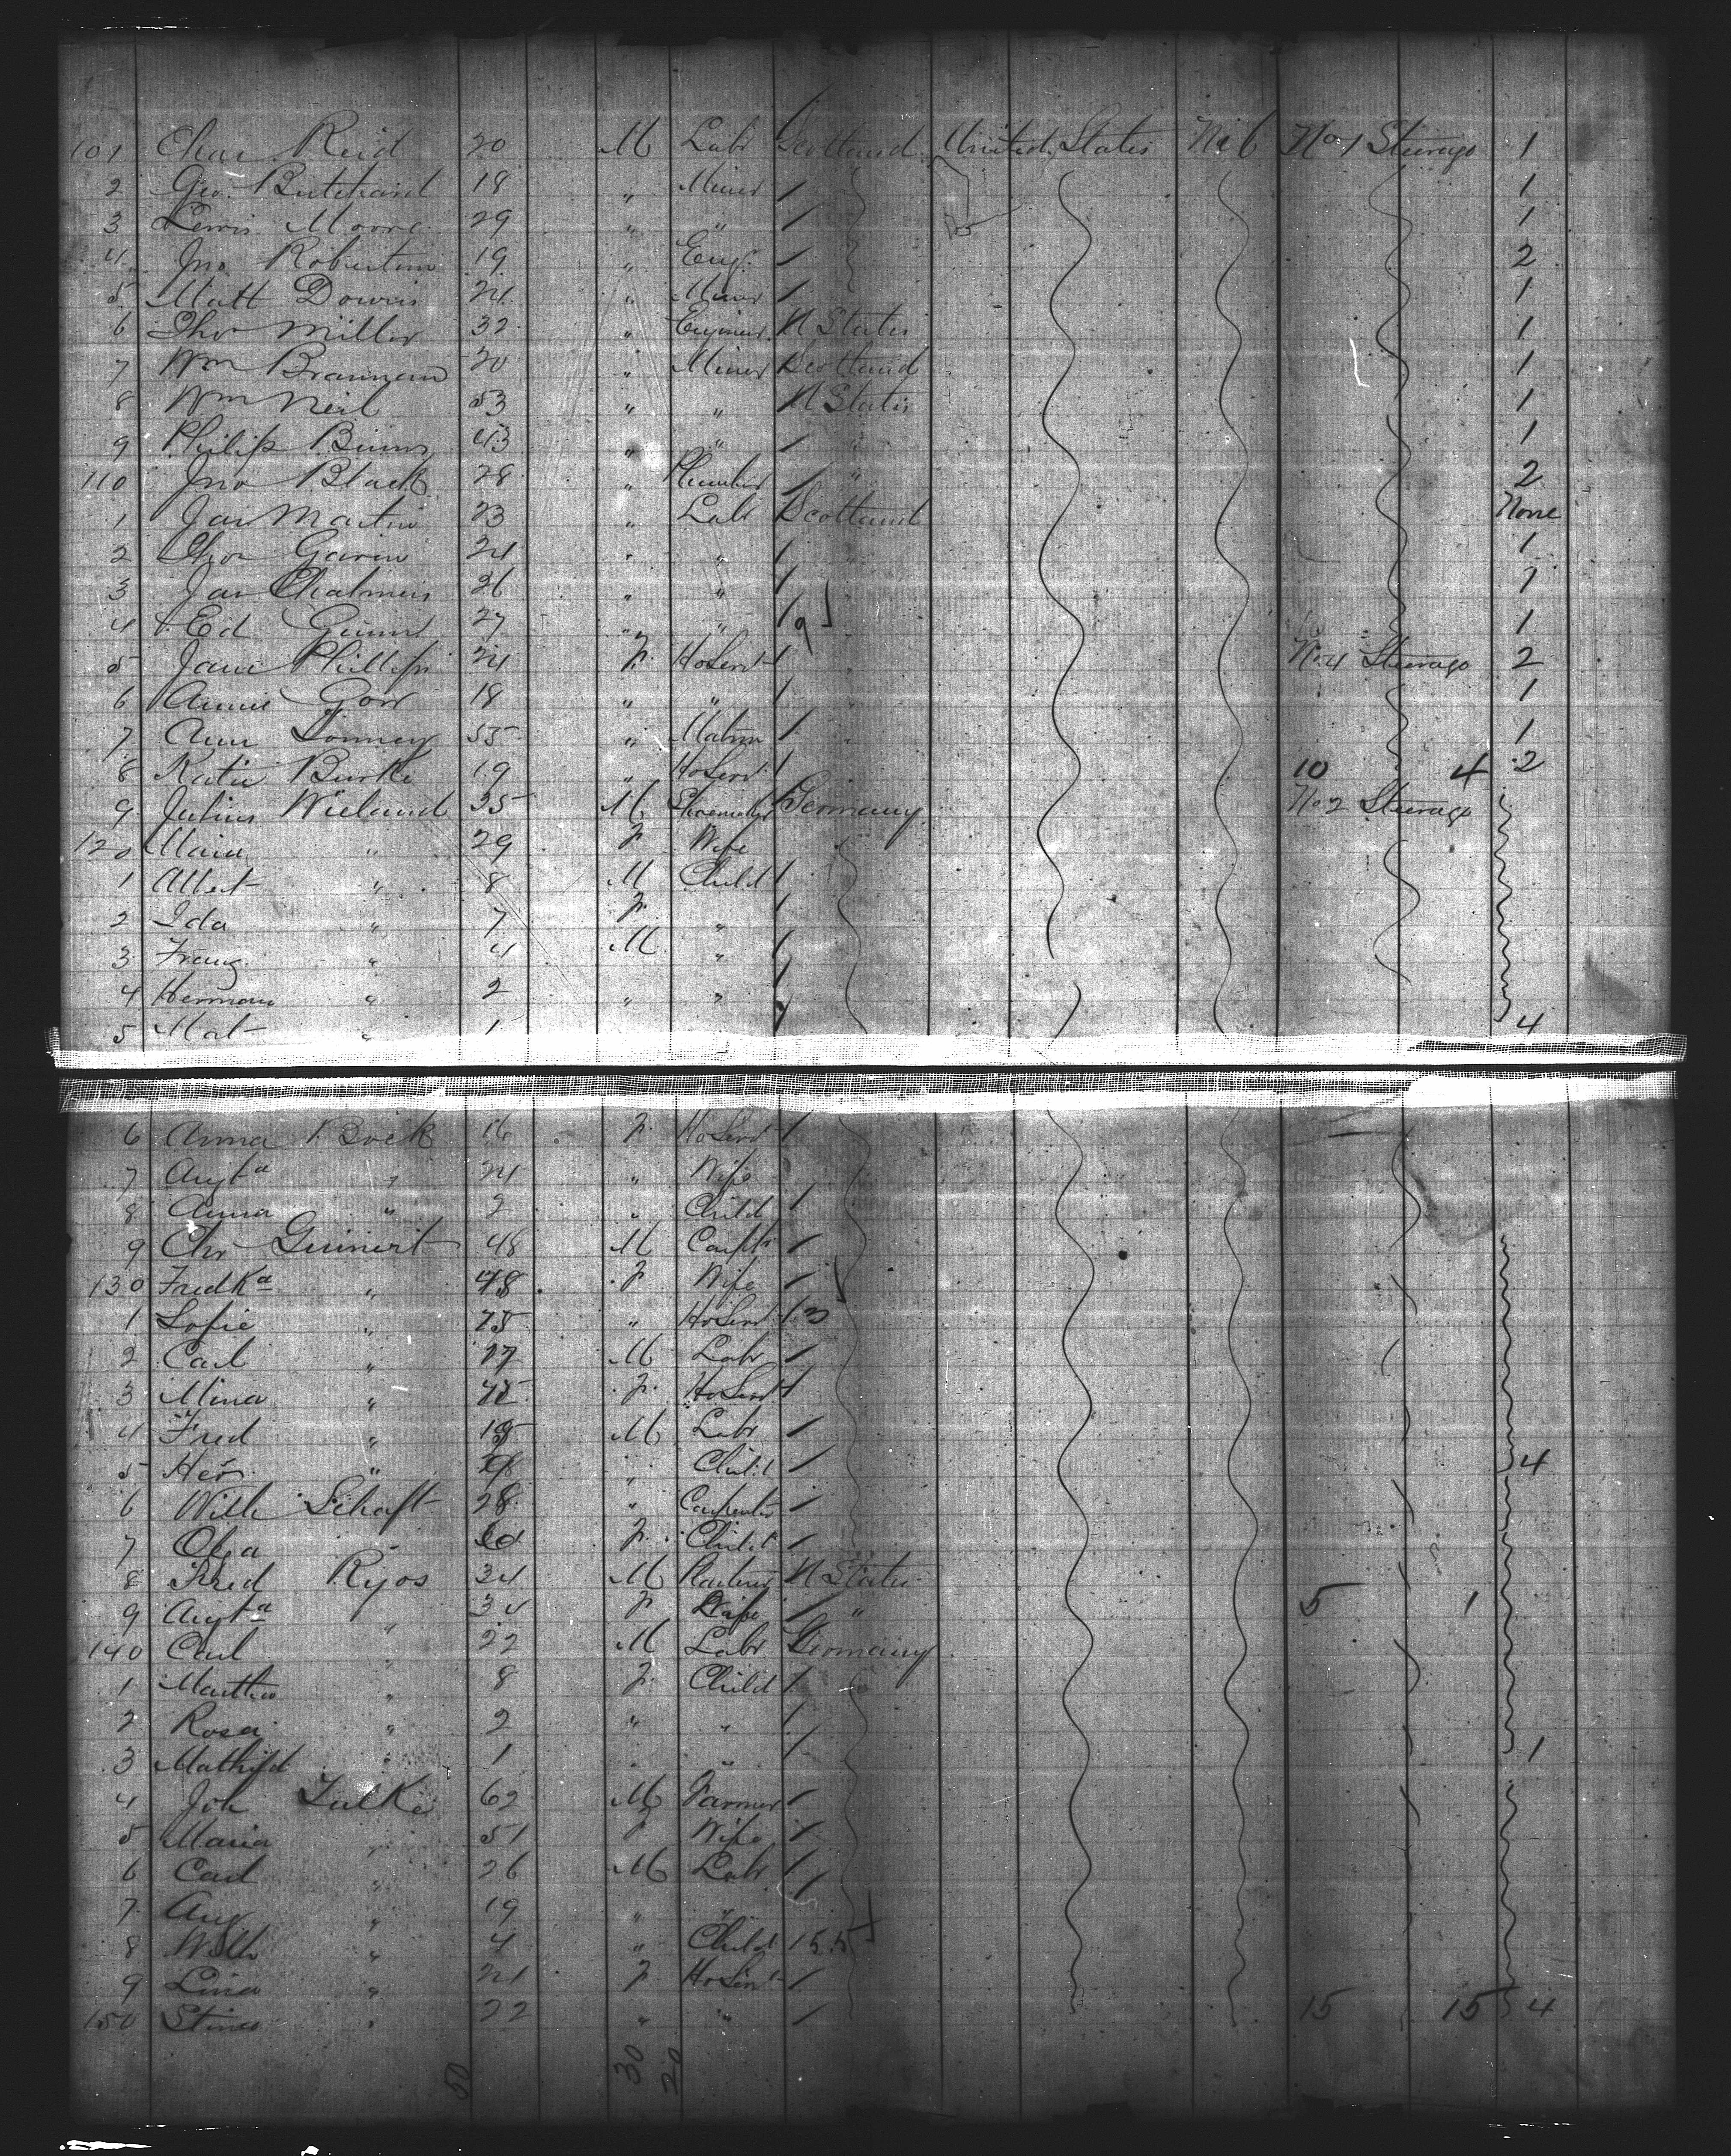 101 Chas Reid 20 M Labr Scotland United States No 6 No 1 Steerage 1
2 Geo. Butchard 18 " Miner / 1
3 Lewis Moore 29 " " / 1
4 Jno Robertson 19 " Engr / 2
5 Matt Downs 24 " Miner / 1
6 Thos Miller 32 " Engineer U States 1
7 Wm Brannan 20 " Miner Scotland 1
8 Wm Neil 53 " " U States 1
9 Philip Binns 43 " " / " 1
110 Jno Black 28 " Plumber / " 2
1 Jas Martin 23 " Labr Scotland None
2 Thos Gavin 24 " " / 1
3 Jas Chalmers 26 " " / 1
4 Ed Gunn 27 " " / 9 1
5 Jane Phillips 24 F HoServt / No 4 Steerage 2
6 Annie Gow 18 " " / 1
7 Ann 55 " Matron / 1
8 Katie Burke 19 " HoServt / 10 4 2
9 Julius Wieland 35 M Shoemaker Germany No 2 Steerage
120 Maria " 29 F Wife
1 Albert " 8 M Child /
2 Ida " 7 F " /
3 Franz " 4 M " /
4 Herman " 2 " " /
5 Mat " 1 4
6 Anna Bock 16 F HoServt /
7 Augta " 24 " Wife
8 Anna " 2 " Child /
9 Chr 48 M Carptr /
130 Fredka " 48 F Wife /
1 Sofie " " HoServt / 3
2 Carl " 17 M Labr /
3 Mina " F HoServt /
4 Fred " M Labr /
5 Her " " Child / 4
6 Wilh Schaft 28 " Carpenter /
7 Olga " F Child /
8 Fred Ryos 34 M U States
9 Augta " 34 F Wife / " 5 1
140 Carl " 22 M Labr Germany
1 Martha " 8 F Child /
2 Rosa " 2 " " /
3 Mathild " 1 " / 1
4 Joh 62 M Farmer /
5 Maria " 51 F Wife /
6 Carl " 26 M Labr /
7 Aug " 19 " " /
8 Wilh " 4 " Child / 5.5
9 Lina " 24 F HoServt /
150 Stina " 22 " " / 15 15 4
50 30 20